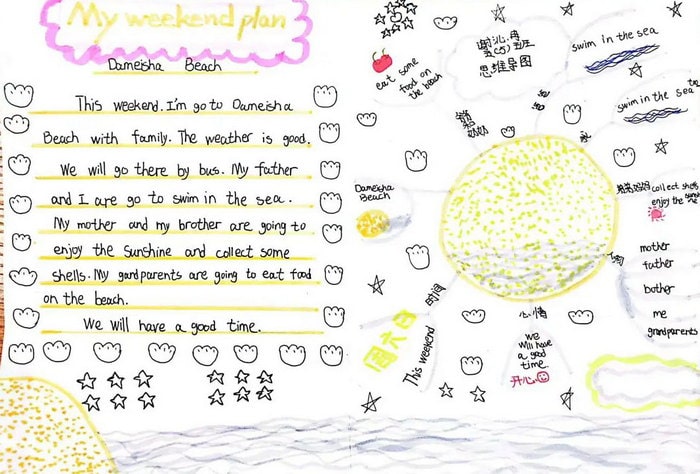 My weekend plan
Dameisha Beach
This weekend. I'm go to Dameisha
Beach with family. The weather is good.
We will go there by bus. My father
and I are go to swim in the sea.
My mother and my brother are going to
enjoy the sunshine and collect some
shells. My gandparents are going to eat food
on the beach.
We will have a good time.
eat some
food on
the beach
五(5)班
思维导图
爸爸
swim in the sea
swim in the sea
Dameisha
Beach
collect shells
enjoy the
mother
father
bother
me
grandparents
时间
This weekend
心情
We
will have
a good
time.
开心